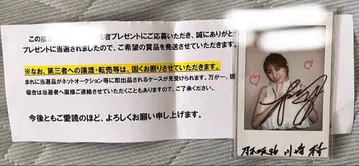 この度は 者プレゼントにご応募いただき、誠にありがと
プレゼントに当選されましたので、ご希望の賞品を発送させていただきます。
※なお、第三者への譲渡・転売等は、固くお断りさせていただきます。
まれに当選品がネットオークション等に即出品されるケースが見受けられます。万が一、
場合は当選者へ直接ご連絡させていただくこともありますので、ご了承ください。
今後ともご愛読のほど、よろしくお願い申し上げます。
乃木坂46